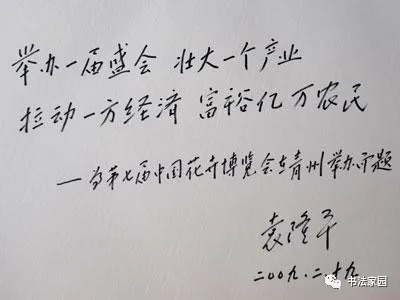 举办一届盛会 壮大一个产业
拉动一方经济 富裕亿万农民
—为第七届中国花卉博览会在青州举办而题
袁隆平
二00九.二.十九
书法家园